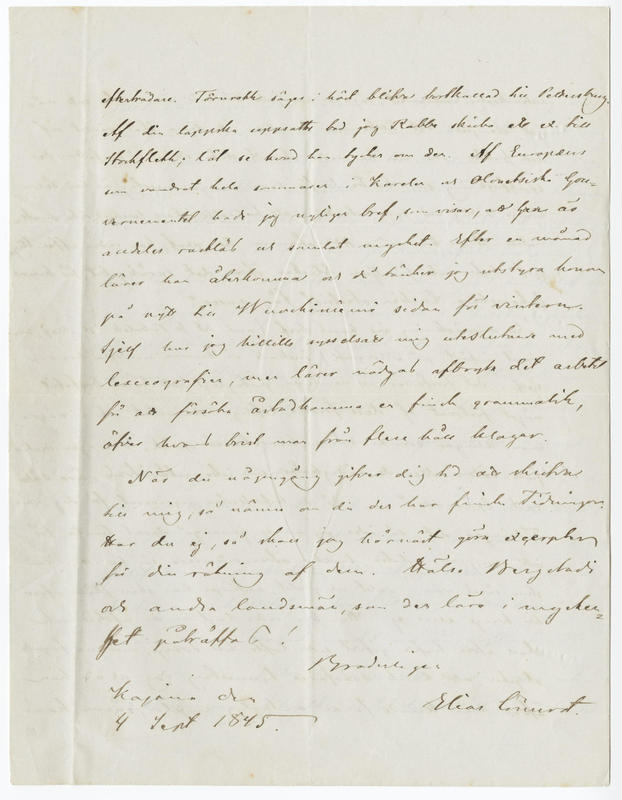 efterträdare. Törnroth säges i höst blifva bortkallad till Petersburg.
Af din lappska uppsatts bad jag Rabbe skicka ett ex till
Stockfleth; låt se hvad han tycker om den. Af Europæus
som vandrat hela sommaren i Karelen och Olonetsiska Gou-
vernementet hade jag nyligen bref, som visar, att han är
aldeles rasklös och samlat mycket. Efter en månad
lärer han återkomma och då tänker jag utstyra honom
på nytt till Wuokkiniemi sidan för vintern.
Sjelf har jag tilltills sysselsatt mig uteslutande med
lexicografin, men lärer nödgas afbryta det arbetet
för att försöka åstadkomma en finsk grammatik,
öfver hvars brist man från flere håll klagar.
När du någongång gifver dig tid att skrifva
till mig, så nämn om du der har finska Tidningar.
Har du ej, så skall jag härnäst göra excerpter
för din räkning af dem. Hälsa Bergstadi
och andra landsmän, som der lära i mycken-
het påträffas!
Broderligen
Elias Lönnrot.
Kajana den
4 Sept 1845.